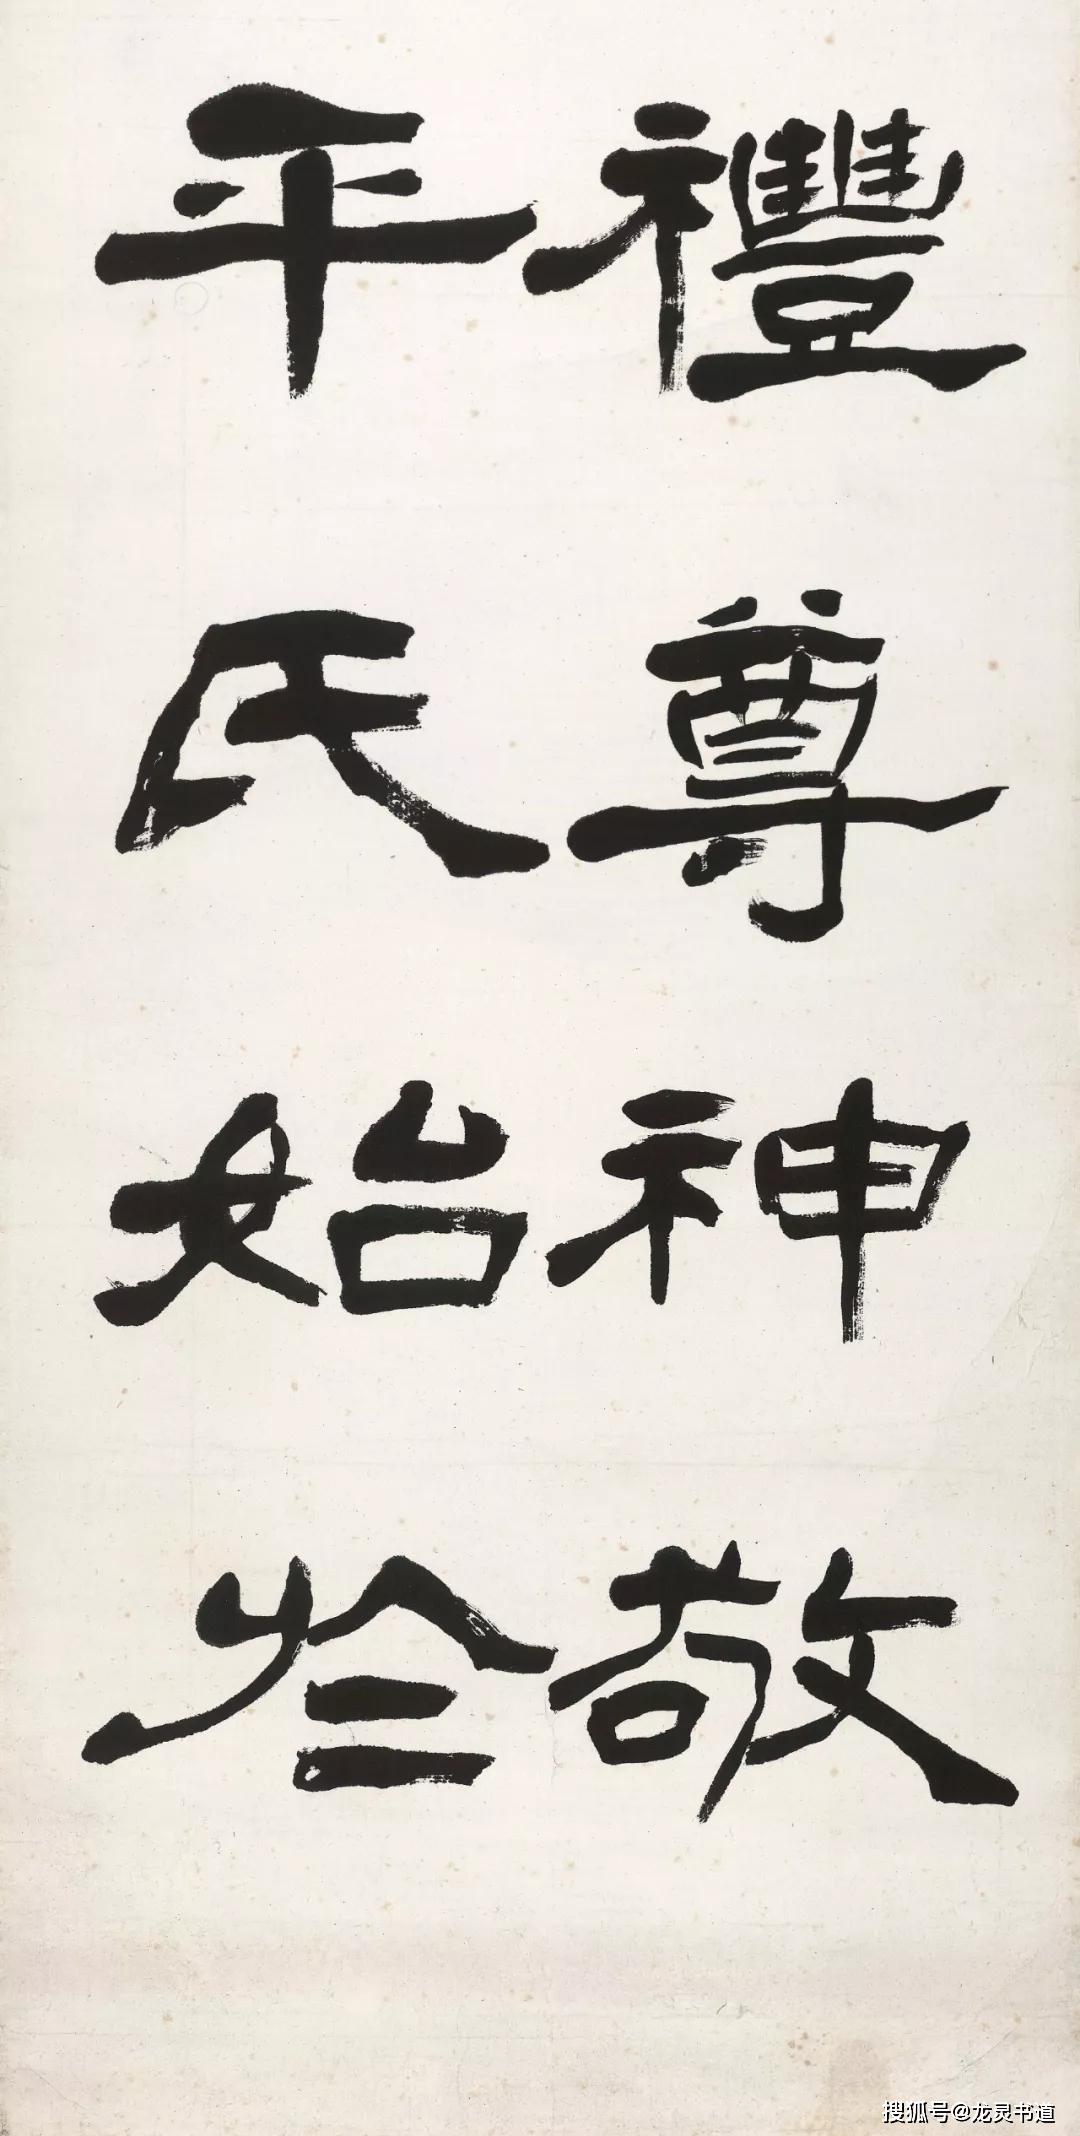 禮尊神敬
平氏始於
搜狐号@龙灵书道